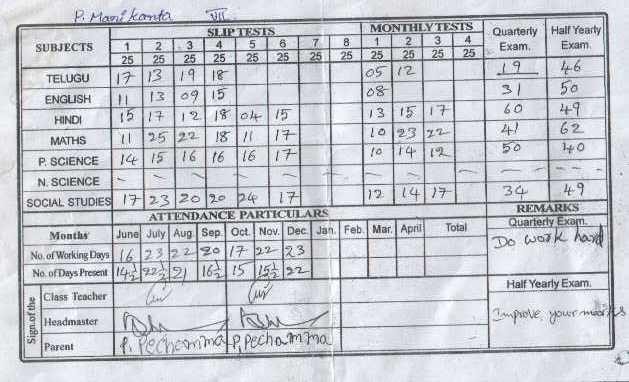 P. Mani kanta VII
SUBJECTS SLIP TESTS MONTHLY TESTS Quarterly Exam. Half Yearly Exam.
1 2 3 4 5 6 7 8 1 2 3 4
25 25 25 25 25 25 25 25 25 25 25 25
TELUGU 17 13 19 18 05 12 19 46
ENGLISH 11 13 09 15 08 31 50
HINDI 15 17 12 18 04 15 13 15 17 60 49
MATHS 11 25 22 18 11 17 10 23 22 41 62
P. SCIENCE 14 15 16 16 16 17 10 14 12 50 40
N. SCIENCE - - - - - - - - - - - - - -
SOCIAL STUDIES 17 23 20 20 24 17 12 14 17 34 49
ATTENDANCE PARTICULARS REMARKS
Months June July Aug. Sep. Oct. Nov. Dec. Jan. Feb. Mar. April Total Quarterly Exam.
No. of Working Days 16 23 22 20 17 22 23 Do work hard
No. of Days Present 14½ 22½ 21 16½ 15 15½ 22
Sign.of the Class Teacher Half Yearly Exam.
Headmaster Improve your marks
Parent P. Pechamma P. Pechamma